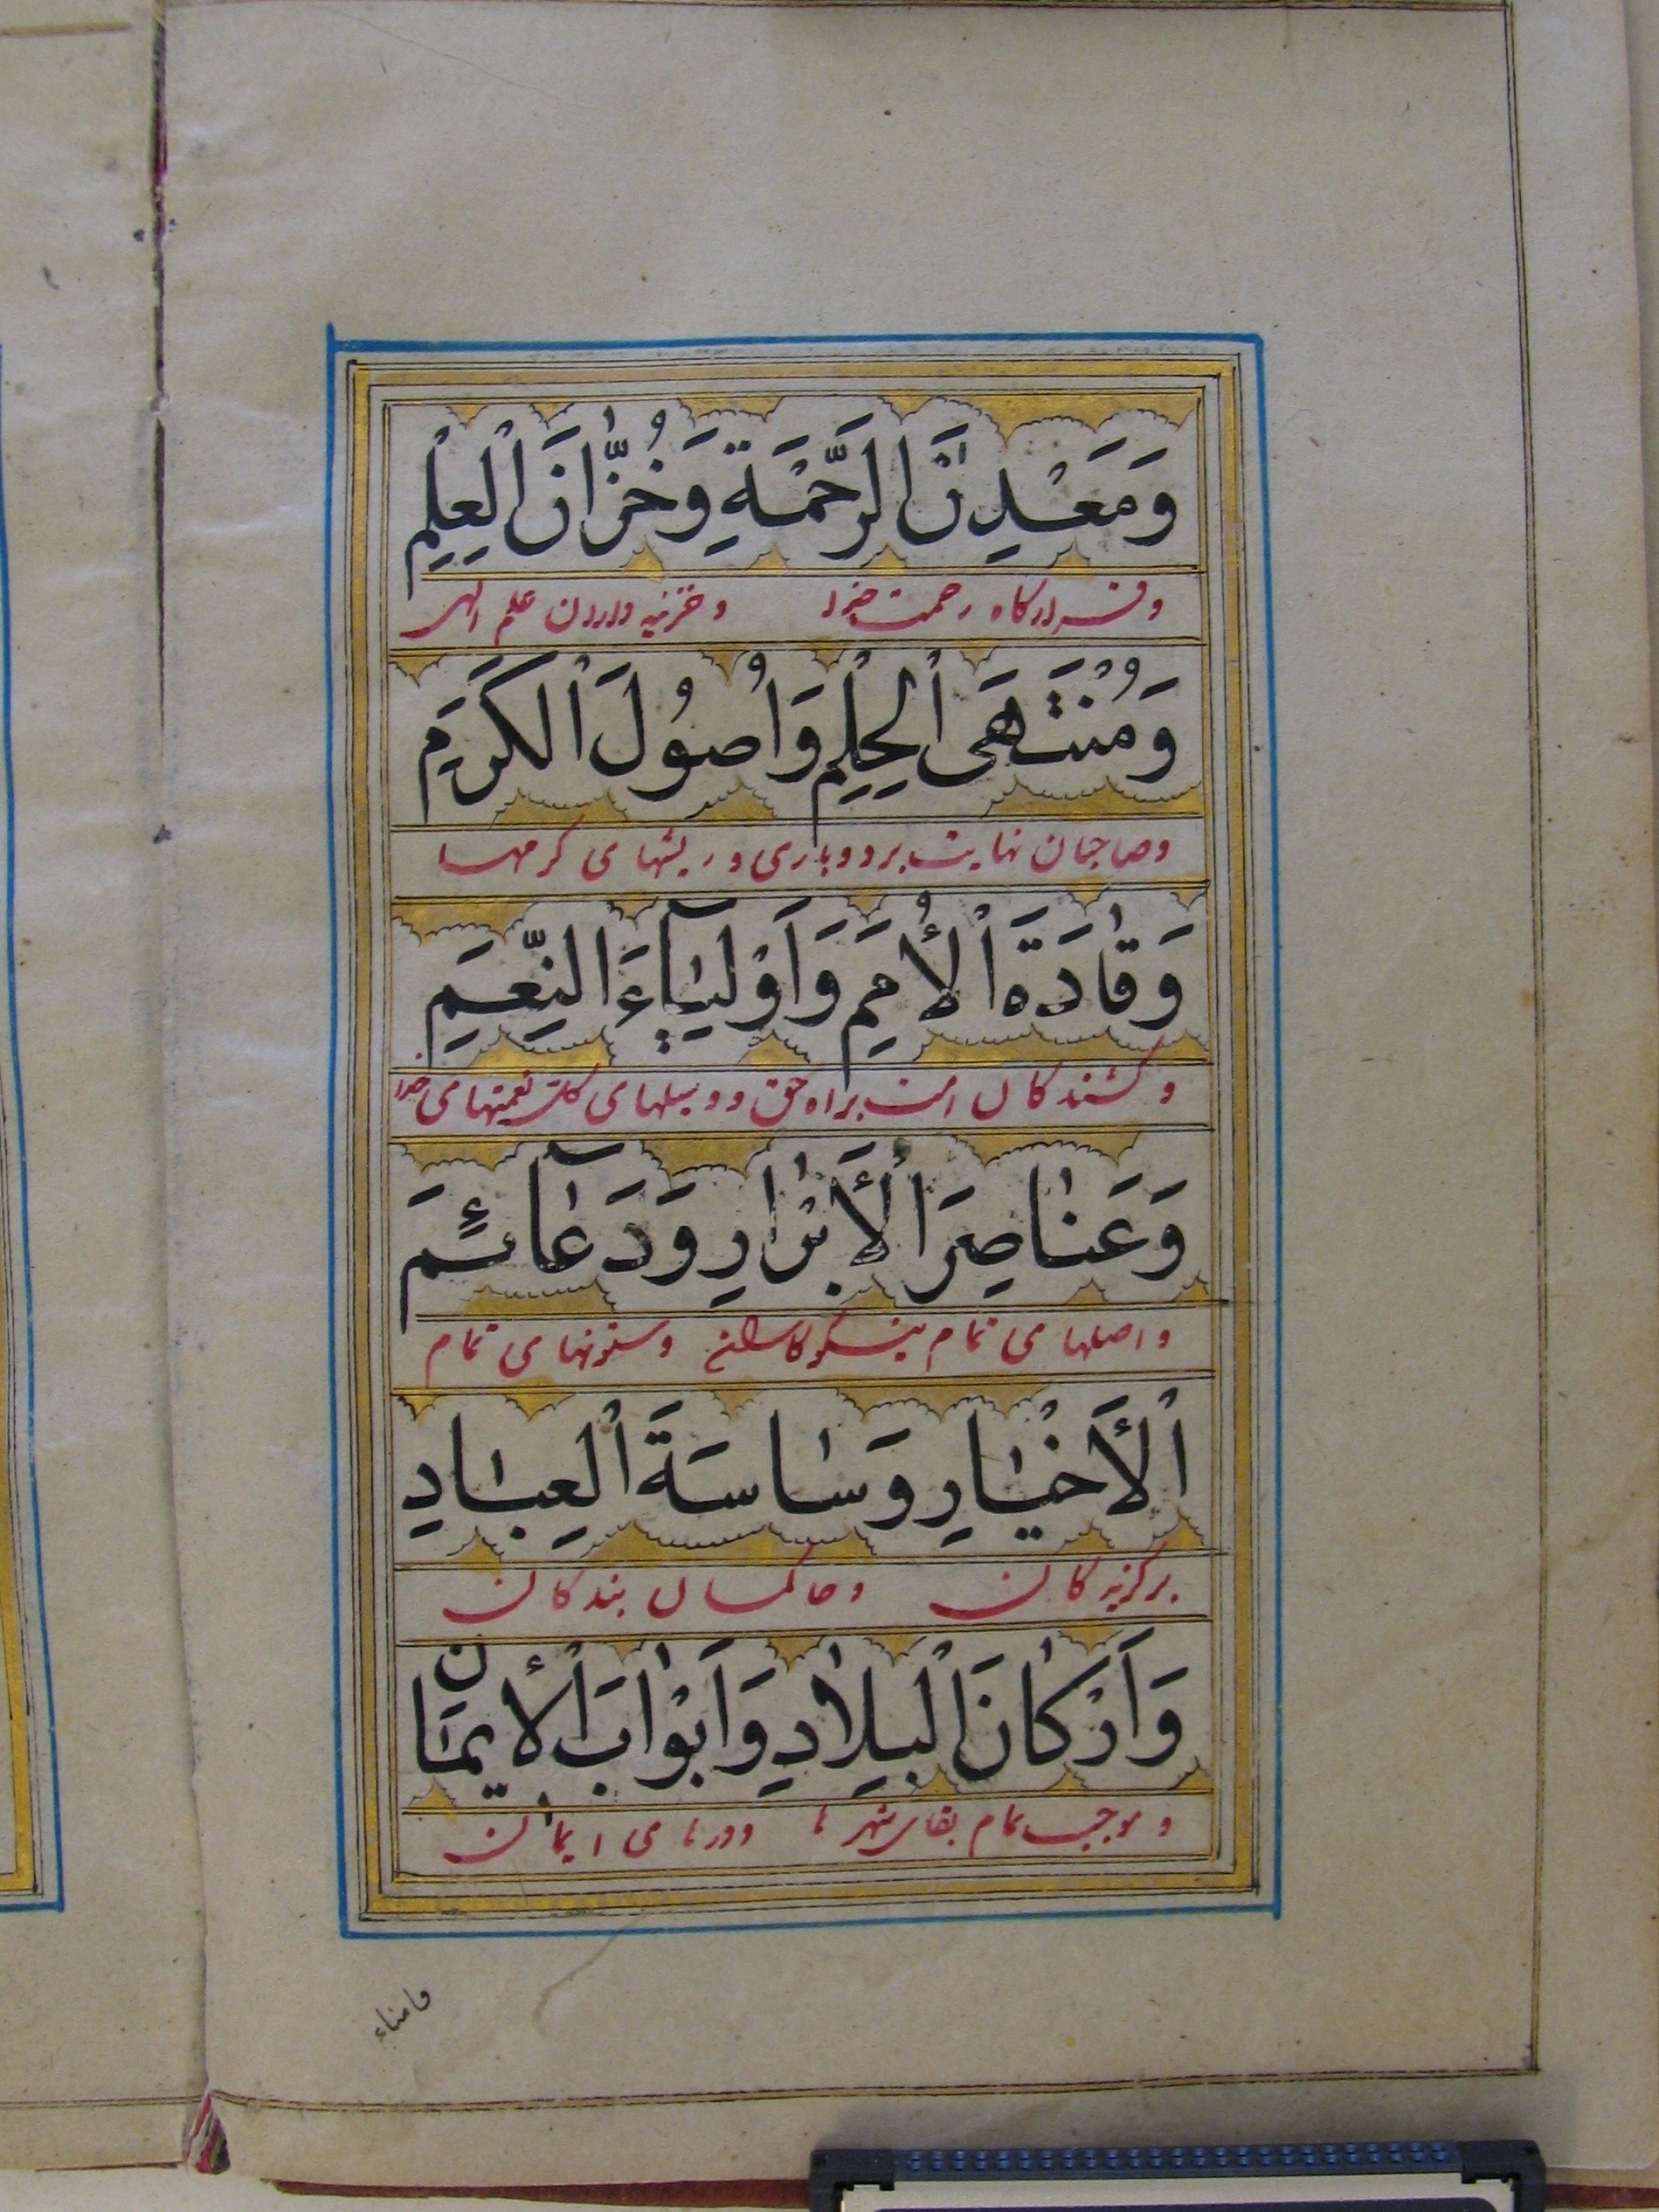 وَمَعْدِنَ الرَّحْمَةِ وَخُزّٰانَ الْعِلْمِ
وفرودگاه رحمت خدا وخزینه داران علم الهی
وَمُنْتَهَى الْحِلْمِ وَاُصُولَ الْكَرَمِ
وصاحبان نهایت بردوباری و ریشهای کرمها
وَقٰادَةَ الْأُمَمِ وَاَوْلِيٰآءَ النِّعَمِ
وکشندکان امت براه حق و وسیلهای کل نعمتهای خدا
وَعَنٰاصِرَ الْأَبْرٰارِ وَدَعٰآئِمَ
و اصلهای تمام نیکوکاران وستونهای تمام
الْأَخْيٰارِ وَسٰاسَةَ الْعِبٰادِ
برگزیدکان وحاکمان بندکان
وَاَرْكٰانَ الْبِلٰادِ وَاَبْوٰابَ الْأِيمٰانِ
و موجب تمام بقای شهرها ودرهای ایمان
وامناء